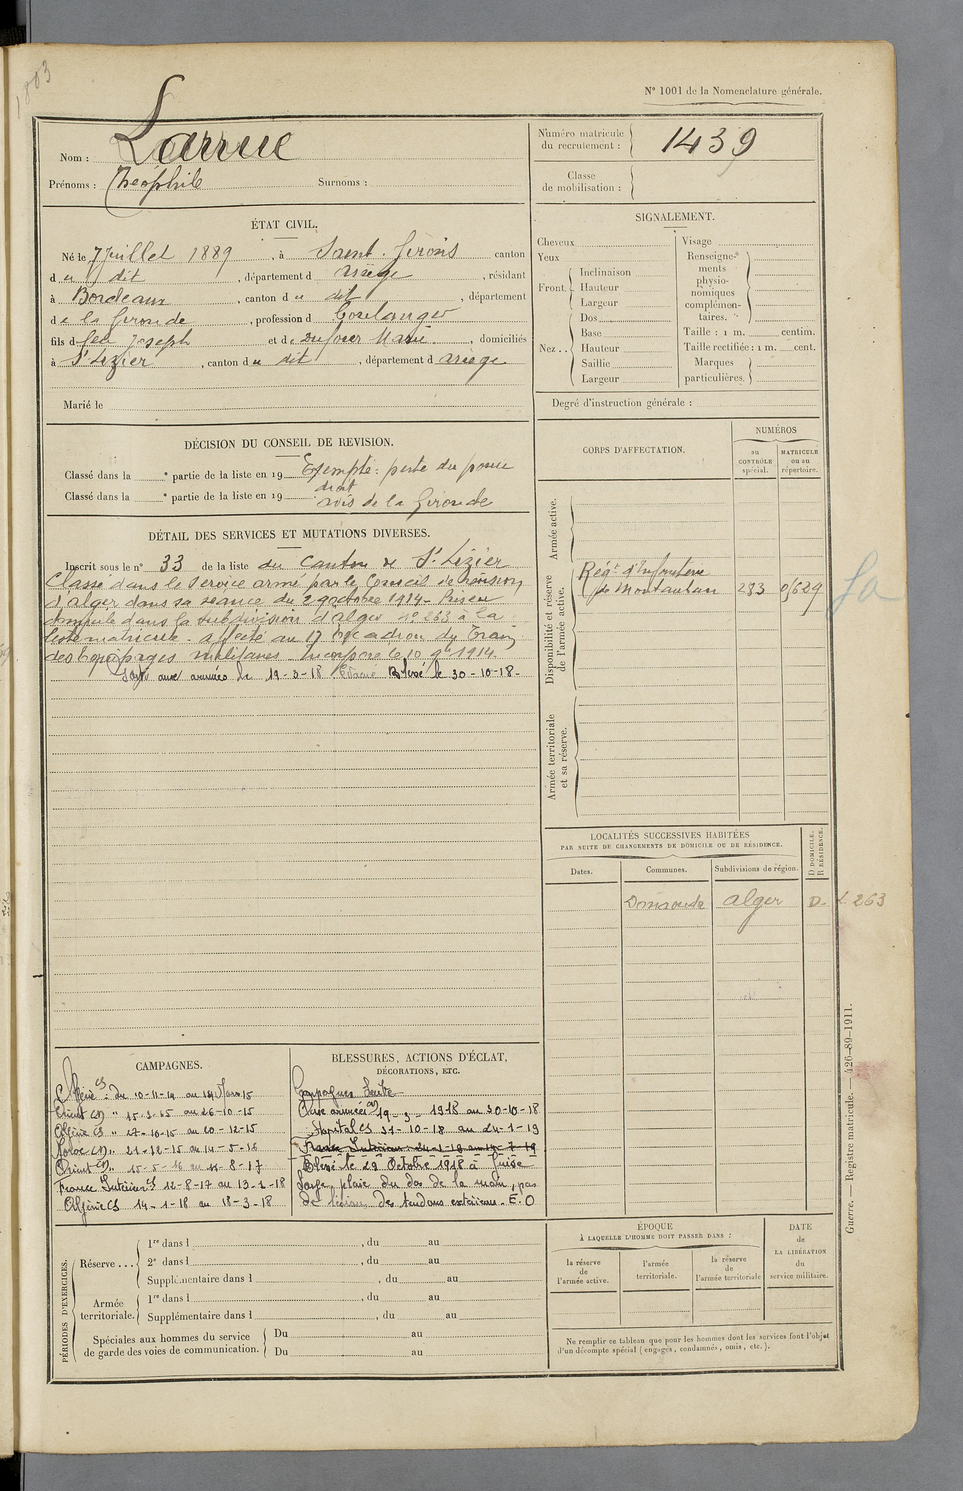 1803
N° 1001 de la Nomenclature générale.
Nom : Larrue
Prénoms : Théophile Surnoms :
Numéro matricule du recrutement : 1439
Classe de mobilisation :
ÉTAT CIVIL.
Né le 7 Juillet 1889, à Saint-Girons canton
du dit, département d Ariège, résidant
à Bordeaux, canton du dit, département
de la Gironde, profession d Boulanger
fils d feu Joseph et de Dufour Marie, domiciliés
à St Lizier, canton du dit, département d Ariège
Marié le
SIGNALEMENT.
Cheveux
Yeux
Front. Inclinaison
Hauteur
Largeur
Nez .. Dos
Base
Hauteur
Saillie
Largeur
Visage
Renseignements physionomiques complémentaires.
Taille : 1 m. centim.
Taille rectifiée : 1 m. cent.
Marques particulières.
Degré d'instruction générale :
DÉCISION DU CONSEIL DE REVISION.
Classé dans la e partie de la liste en 19 Exempté : perte du pouce
droit
Classé dans la e partie de la liste en 19 avis de la Gironde
DÉTAIL DES SERVICES ET MUTATIONS DIVERSES.
Inscrit sous le n° 33 de la liste du Canton de St Lizier
Classé dans le service armé par le Conseil de Révision
d'Alger dans sa séance du 29 octobre 1914 - Pris en
compte dans la subdivision d'Alger n° 263 à la
liste matricule - Affecté au 17 Escadron du Train
des Equipages militaires Incorporé le 10 9bre 1914.
aux armées le 19-3-18 Evacué Blessé le 30-10-18-
CORPS D'AFFECTATION.
NUMÉROS
au CONTRÔLE spécial.
MATRICULE ou au répertoire.
Armée active.
Disponibilité et réserve de l'armée active.
Régt d'Infanterie
de Montauban 283 05629
Armée territoriale et sa réserve.
LOCALITÉS SUCCESSIVES HABITÉES
PAR SUITE DE CHANGEMENTS DE DOMICILE OU DE RÉSIDENCE.
D DOMICILE. R RÉSIDENCE.
Dates. Communes. Subdivisions de région.
Alger D. L 263
CAMPAGNES.
Algérie CS : du 10-11-14 au 14 Mars 15
Orient (1) " 15-3-15 au 26-10-15
Algérie CS " 27-10-15 au 20-12-15
Maroc (1) " 21-12-15 au 14-5-16
Orient (1) " 15-5-16 au 11-8-17
France Intérieur CS 12-8-17 au 13-1-18
Algérie CS 14-1-18 au 18-3-18
BLESSURES, ACTIONS D'ÉCLAT,
DÉCORATIONS, ETC.
Campagnes Suite
Aux armées (1) 19-3-1918 au 30-10-18
Hôpital CS 31-10-18 au 24-1-19
France Intérieur 24-1-19 au 7-19
Blessé le 29 Octobre 1918 à Guise
Large plaie du dos de la main, pas
de lésions des tendons extérieurs. E.O
PÉRIODES D'EXERCICES.
Réserve ... 1re dans l , du au
2e dans l , du au
Supplémentaire dans l , du au
Armée territoriale. 1re dans l , du au
Supplémentaire dans l , du au
Spéciales aux hommes du service de garde des voies de communication. Du au
Du au
ÉPOQUE
À LAQUELLE L'HOMME DOIT PASSER DANS :
la réserve de l'armée active.
l'armée territoriale.
la réserve de l'armée territoriale
DATE de LA LIBÉRATION du service militaire.
Ne remplir ce tableau que pour les hommes dont les services font l'objet
d'un décompte spécial (engagés, condamnés, omis, etc.).
Guerre. — Registre matricule. — 426-89-1911.